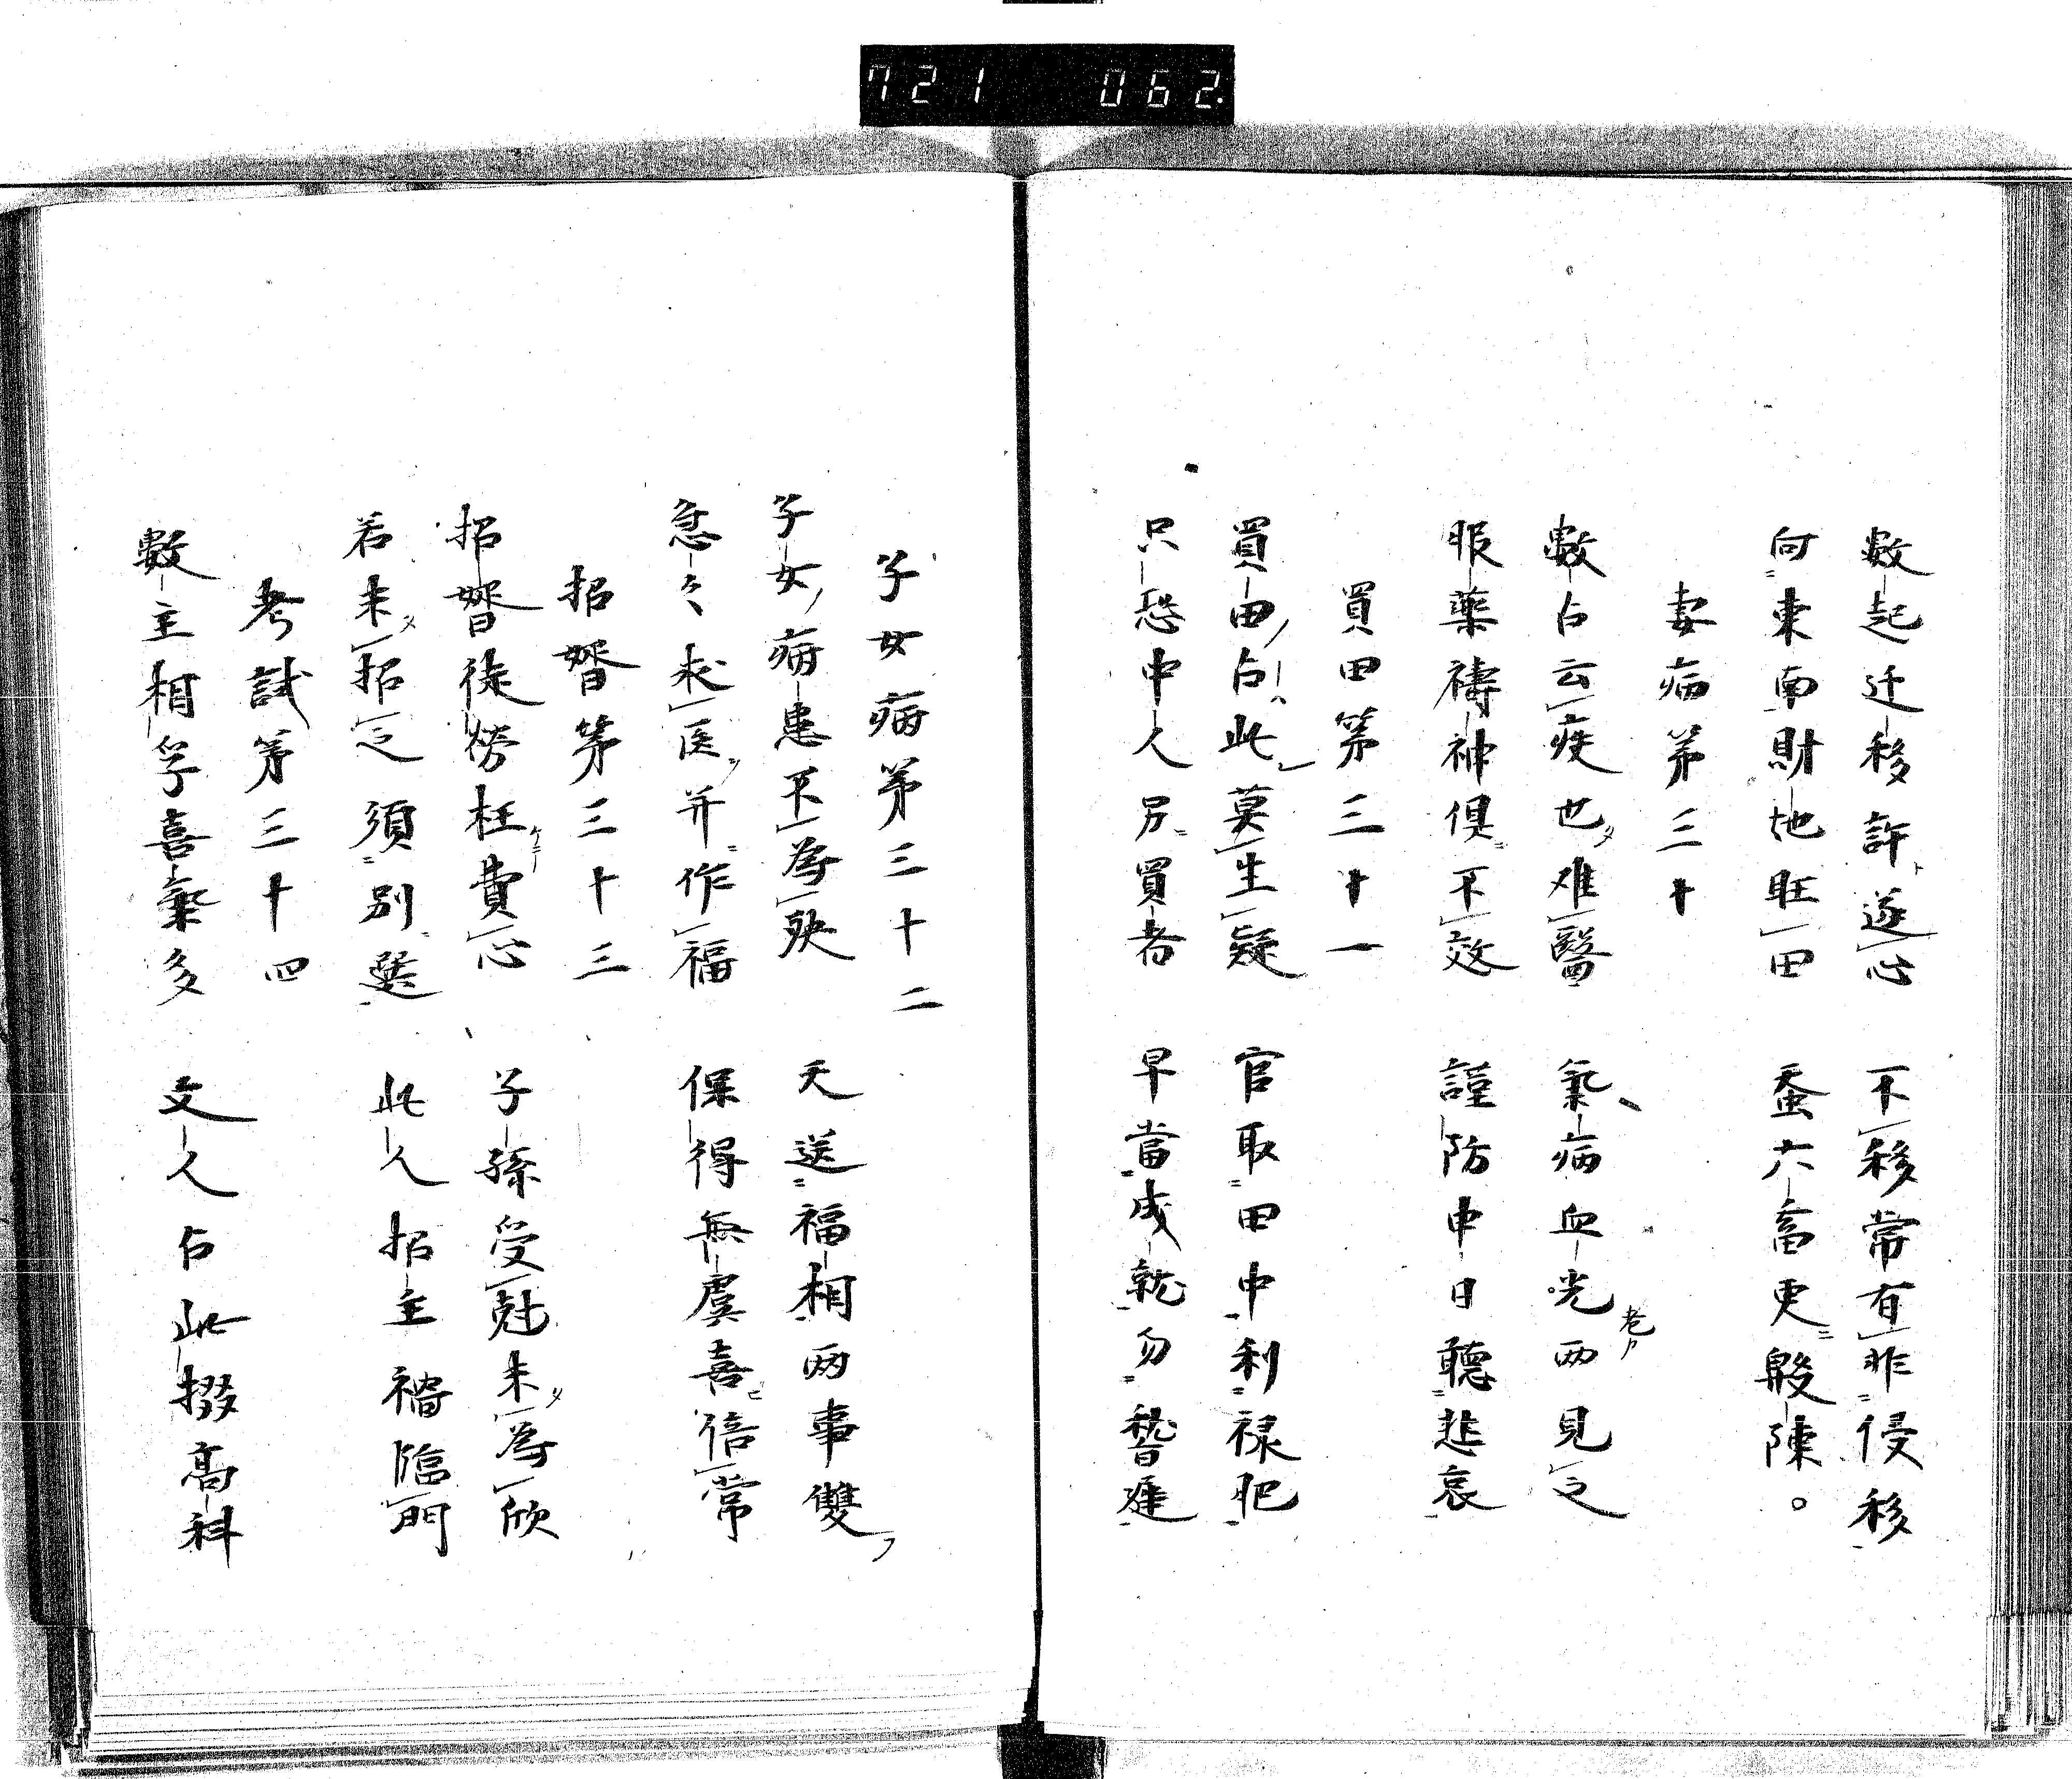 721 062
數起迁移許遂心 不移常有非侵移
向東南財地旺田 蚕六畜更般陳。
妻病第三十
數占云疾也难醫 氣病血光両見之
服藥禱神俱不效 謹防申日聴悲哀
買田第三十一
買田占此莫生疑 官取田中利禄肥
只恐中人另買者 早當成就勿稽遅
子女病第三十二
子女病患不為殃 天送福相両事雙
急々求医并作福 保得無虞喜倍常
招婿第三十三
招婿徒劳枉費心 子孫受尅未為欣
若未招之須別選 此人招主禍臨門
考試第三十四
數主相孚喜氣多 文人占此掇高科